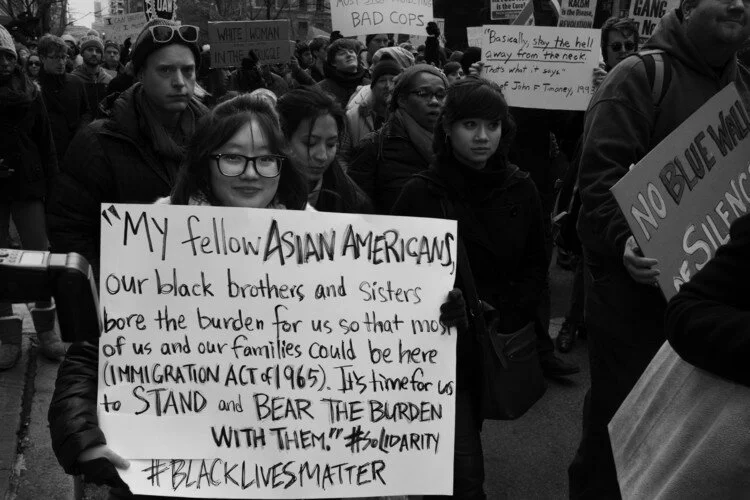 BAD COPS
WHITE WOMAN
IN THE STRUGGLE
"Basically, stay the hell
away from the neck.
That's what it says."
of John F Timoney, 1993
"MY fellow ASIAN AMERICANS,
our black brothers and sisters
bore the burden for us so that most
of us and our families could be here
(IMMIGRATION ACT of 1965). It's time for us
to STAND and BEAR THE BURDEN
WITH THEM." #SOLIDARITY
#BLACKLIVESMATTER
NO BLUE WALL
OF SILENCE